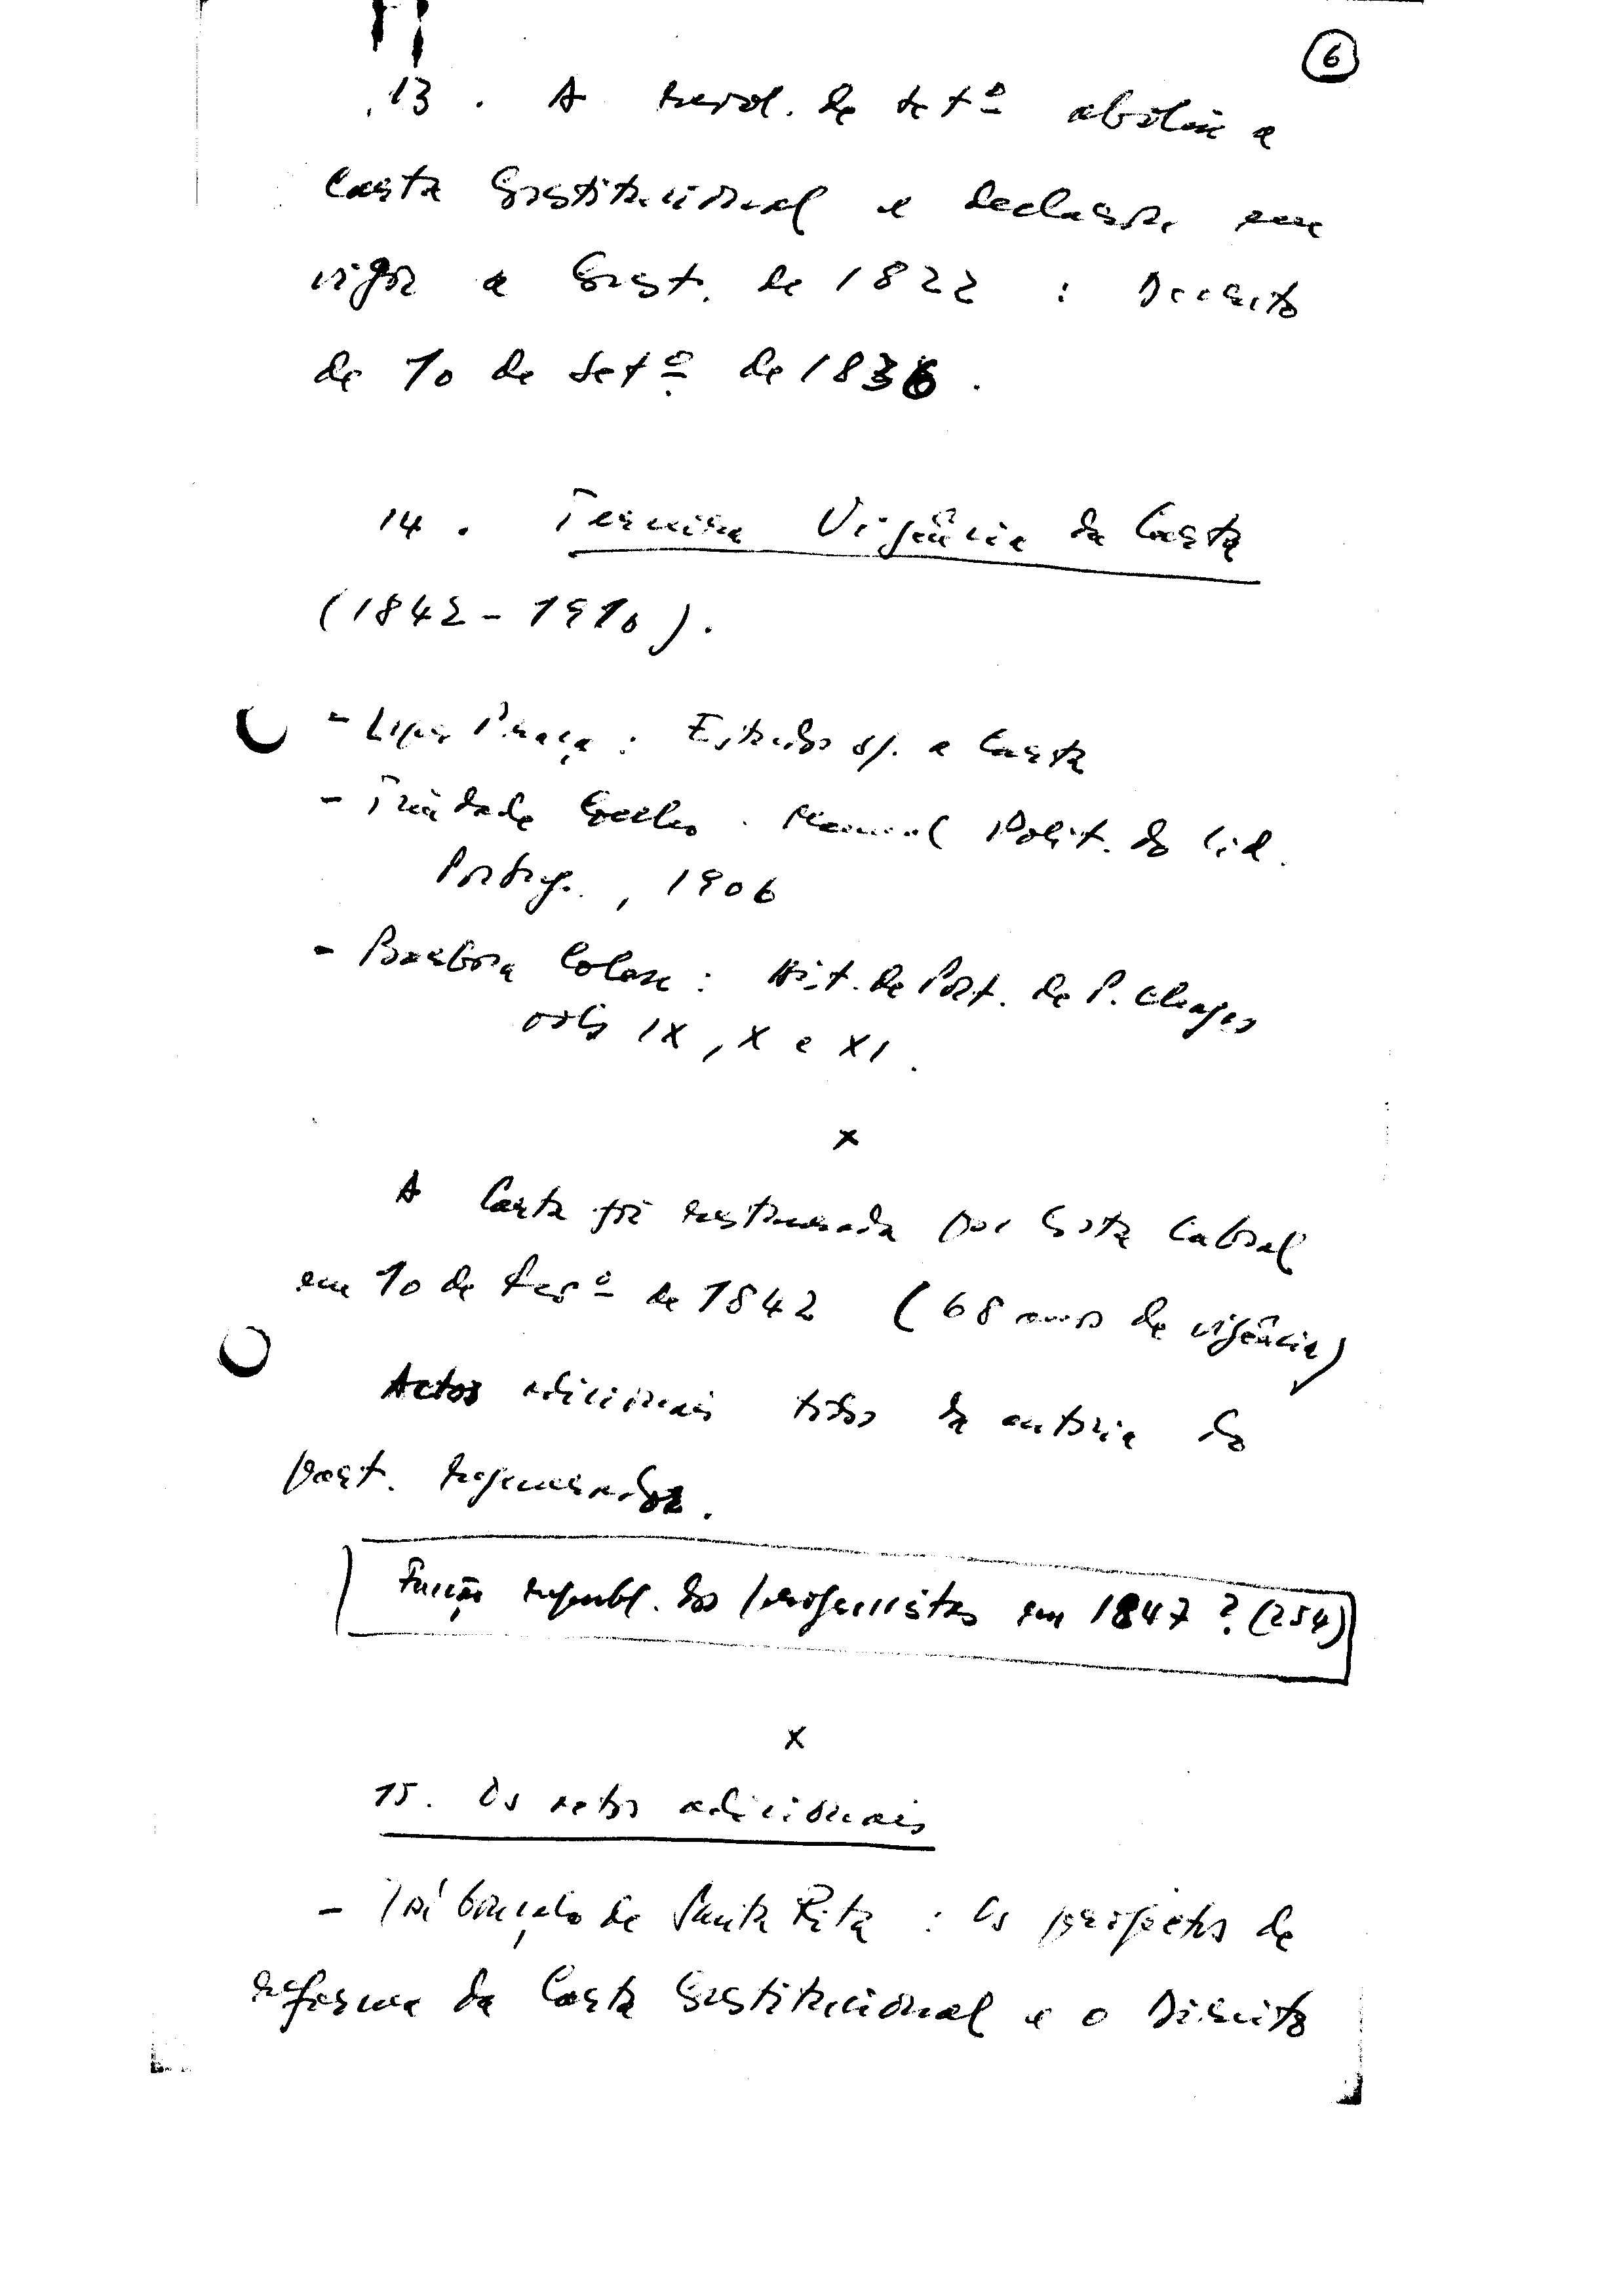 6
13. A revol. de setº aboliu a
Carta Constitucional e declarou em
vigor a Const. de 1822 : Decreto
de 10 de setº de 1836.
14. Terceira Vigência da Carta
(1842 - 1910).
- Lopes Praça : Estudos s/. a Carta
- Trindade Coelho . Manual Polit. do Cid.
Portug., 1906
- Barbosa Colen : Hist. de Port. de P. Chagas
vols IX, X e XI.
x
A Carta foi restaurada por Costa Cabral
em 10 de Fevº de 1842 (68 anos de vigência)
Actos adicionais todos da autoria do
part. regenerador.
Facção republ. dos progressistas em 1847 ? (254)
x
15. Os actos adicionais
- José Gonçalo de Santa Rita : Os projectos de
reforma da Carta Constitucional e o Direito